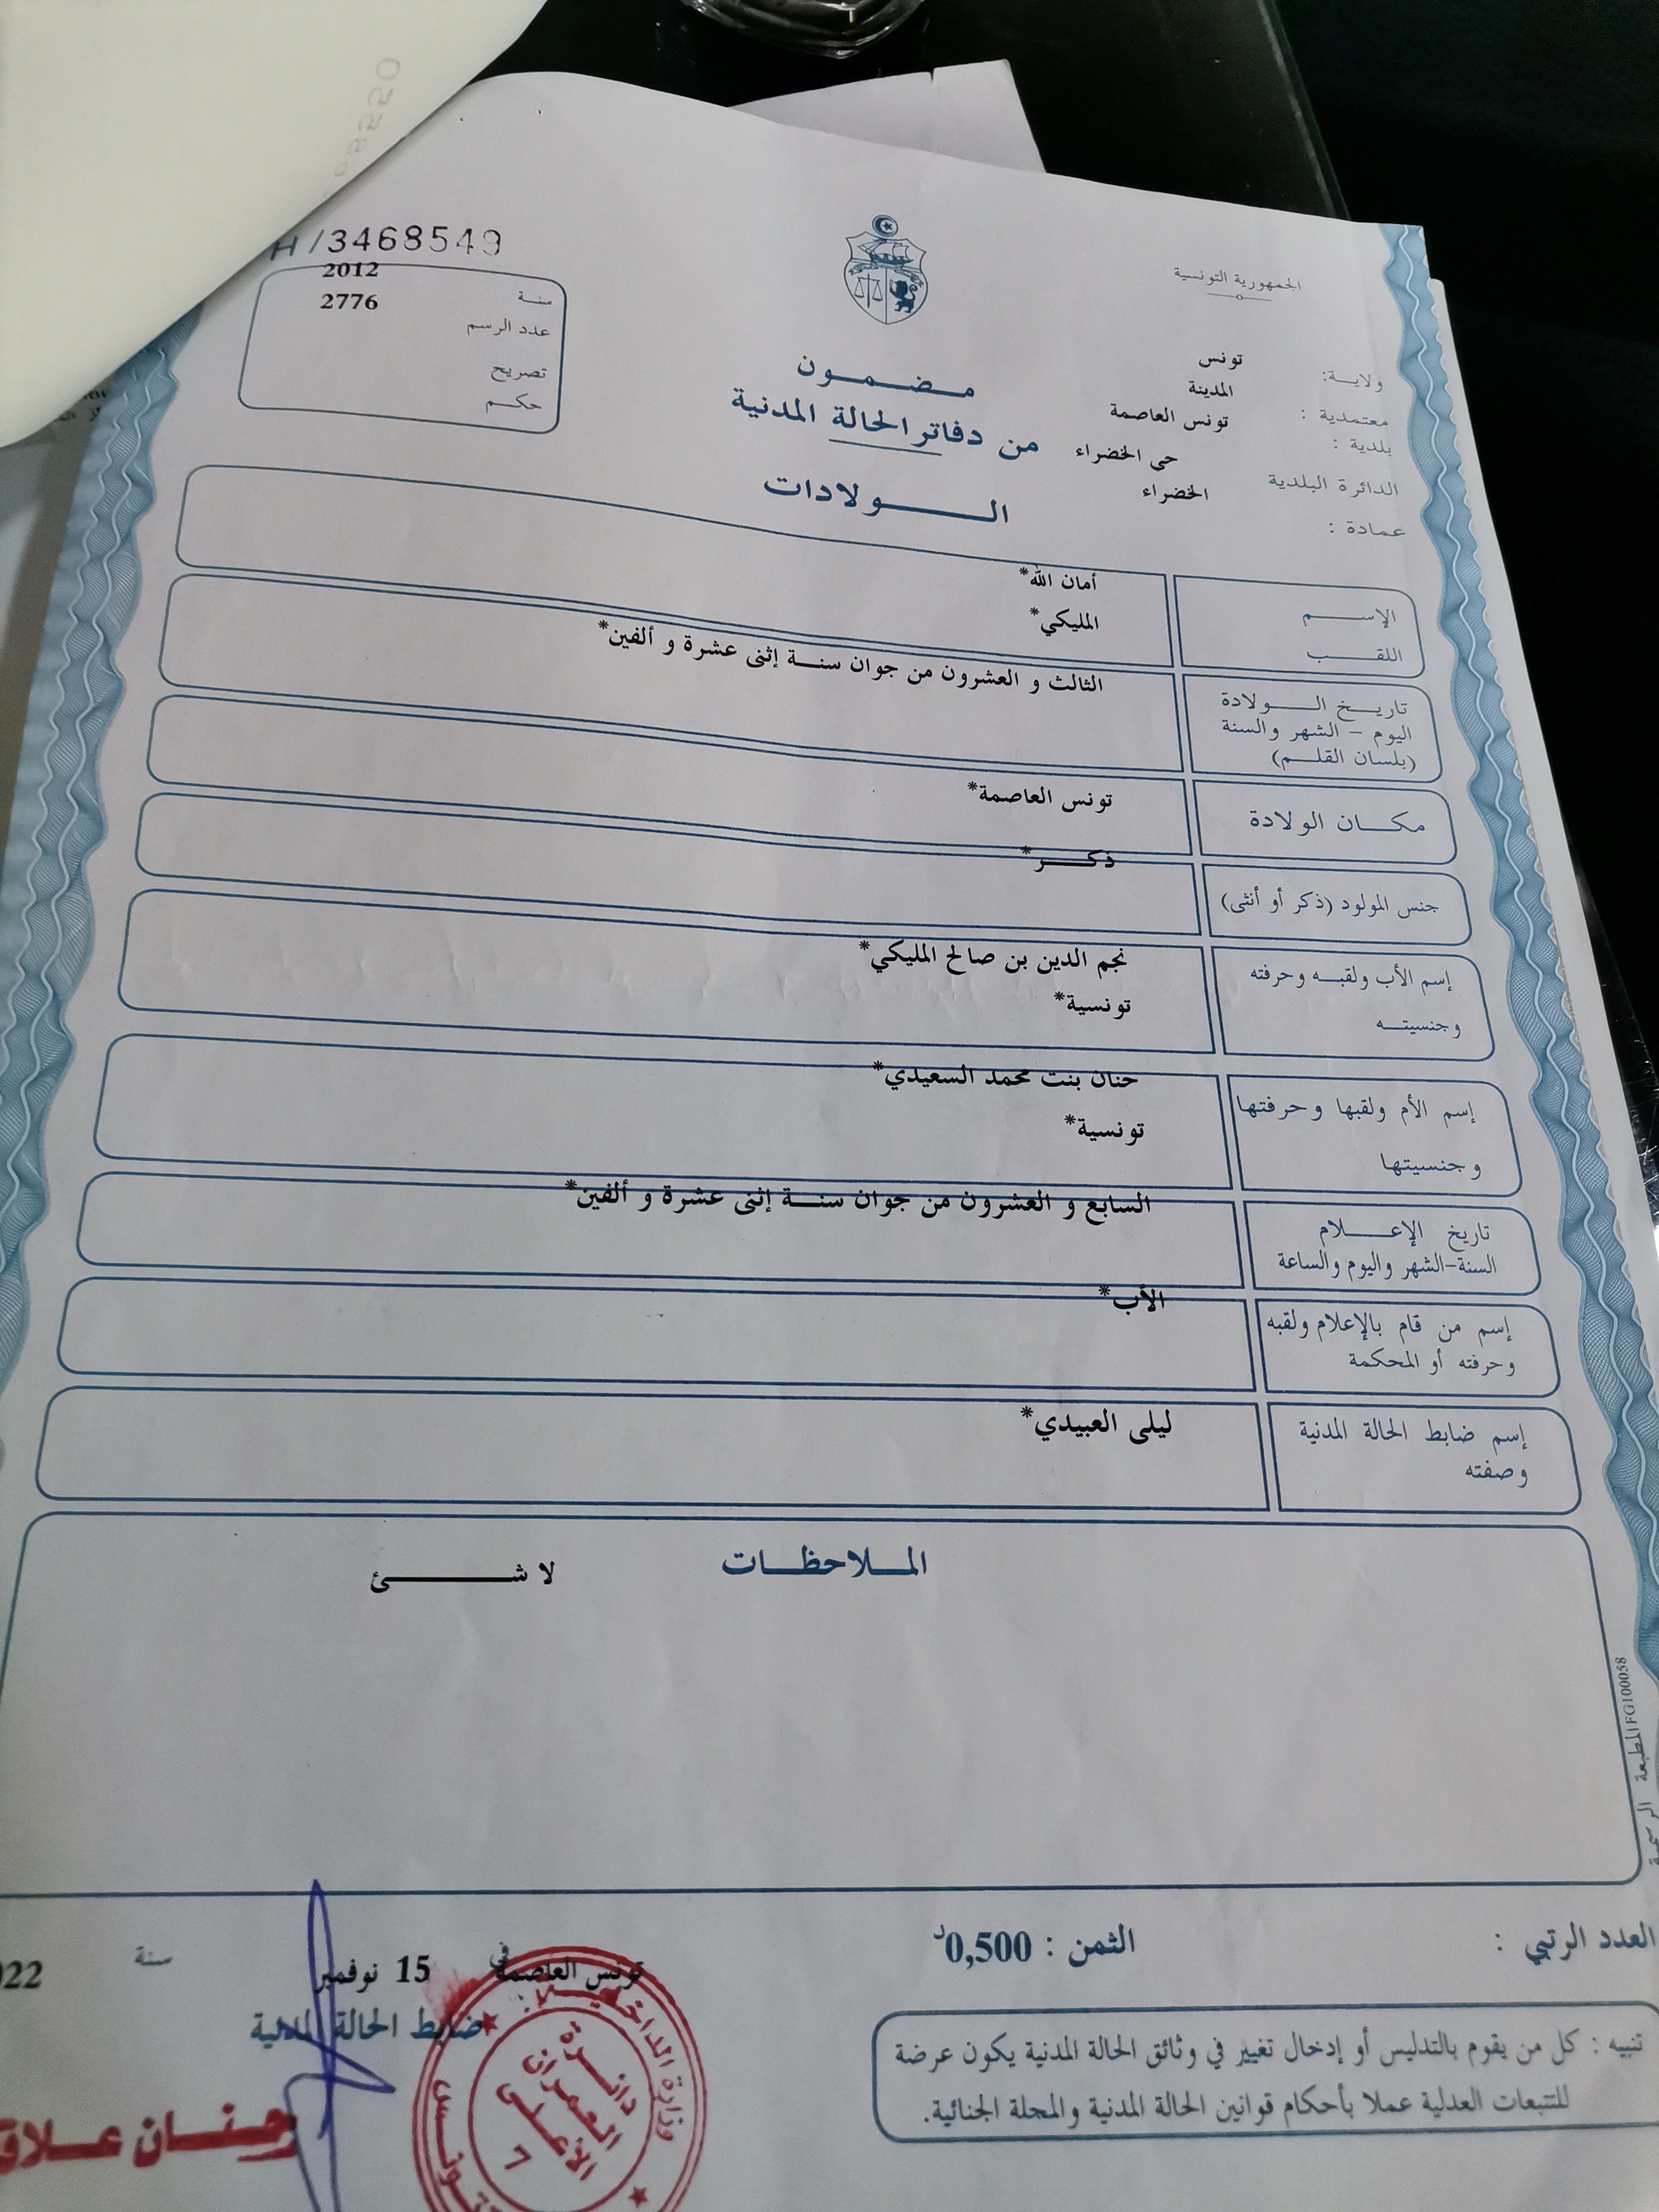 H/3468549
الجمهورية التونسية
سنة 2012
عدد الرسم 2776
تصريح
حكم
ولاية: تونس
معتمدية : المدينة
بلدية : تونس العاصمة
الدائرة البلدية حى الخضراء
عمادة : الخضراء
مضمون
من دفاتر الحالة المدنية
الولادات
الإسم أمان الله*
اللقب المليكي*
تاريخ الولادة
اليوم - الشهر والسنة
(بلسان القلم)
الثالث و العشرون من جوان سنة إثنى عشرة و ألفين*
مكان الولادة تونس العاصمة*
جنس المولود (ذكر أو أنثى) ذكر*
إسم الأب ولقبه وحرفته نجم الدين بن صالح المليكي*
وجنسيته تونسية*
إسم الأم ولقبها وحرفتها حنان بنت محمد السعيدي*
وجنسيتها تونسية*
تاريخ الإعلام
السنة-الشهر واليوم والساعة
السابع و العشرون من جوان سنة إثنى عشرة و ألفين*
إسم من قام بالإعلام ولقبه
وحرفته أو المحكمة
الأب*
إسم ضابط الحالة المدنية
وصفته
ليلى العبيدي*
الملاحظات
لا شئ
المطبعة الرسمية FG100058
العدد الرتبي :
الثمن : 0,500د
تونس العاصمة في 15 نوفمبر سنة 022
ضابط الحالة المدنية
تنبيه : كل من يقوم بالتدليس أو إدخال تغيير في وثائق الحالة المدنية يكون عرضة
للتتبعات العدلية عملا بأحكام قوانين الحالة المدنية والمجلة الجنائية.
وزارة الداخلية
دائرة
العمران
الأعلى
7
تونس
حنان علاق